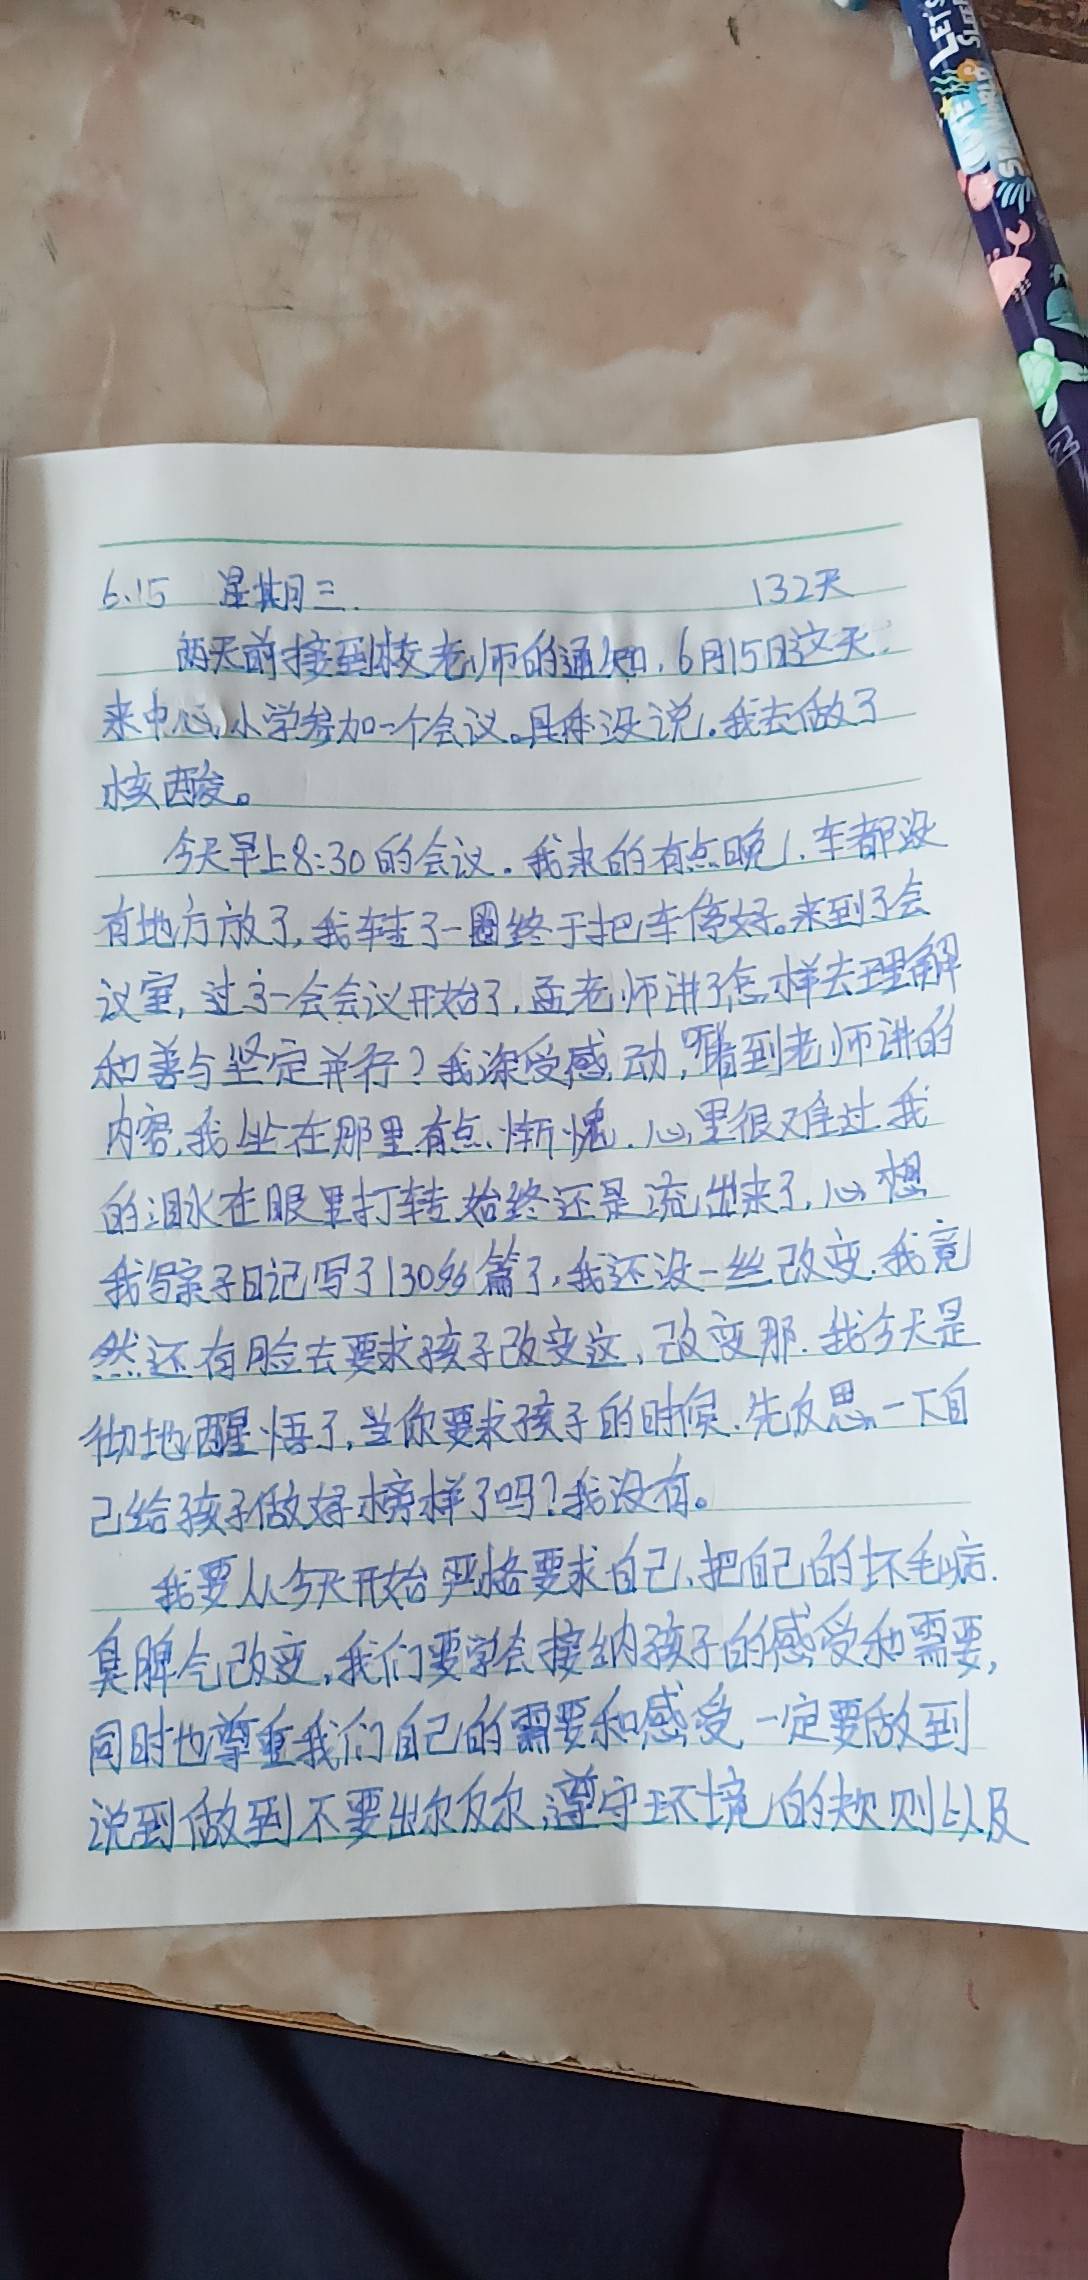 LET'S
6.15 星期三. 132天
两天前接到校老师的通知,6月15日这天,
来中心小学参加一个会议。具体没说。我去做了
核酸。
今天早上8:30的会议.我来的有点晚,车都没
有地方放了,我转了一圈终于把车停好。来到了会
议室,过了一会会议开始了,孟老师讲了怎样去理解
和善与坚定并行?我深受感动,看到老师讲的
内容,我坐在那里有点惭愧.心里很难过我
的泪水在眼里打转,始终还是流出来了,心想
我写亲子日记写了130多篇了,我还没一丝改变.我竟
然还有脸去要求孩子改变这,改变那.我今天是
彻地醒悟了,当你要求孩子的时候.先反思一下自
己给孩子做好榜样了吗?我没有。
我要从今天开始严格要求自己,把自己的坏毛病.
臭脾气改变,我们要学会接纳孩子的感受和需要,
同时也尊重我们自己的需要和感受,一定要做到
说到做到不要出尔反尔,遵守环境的规则以及